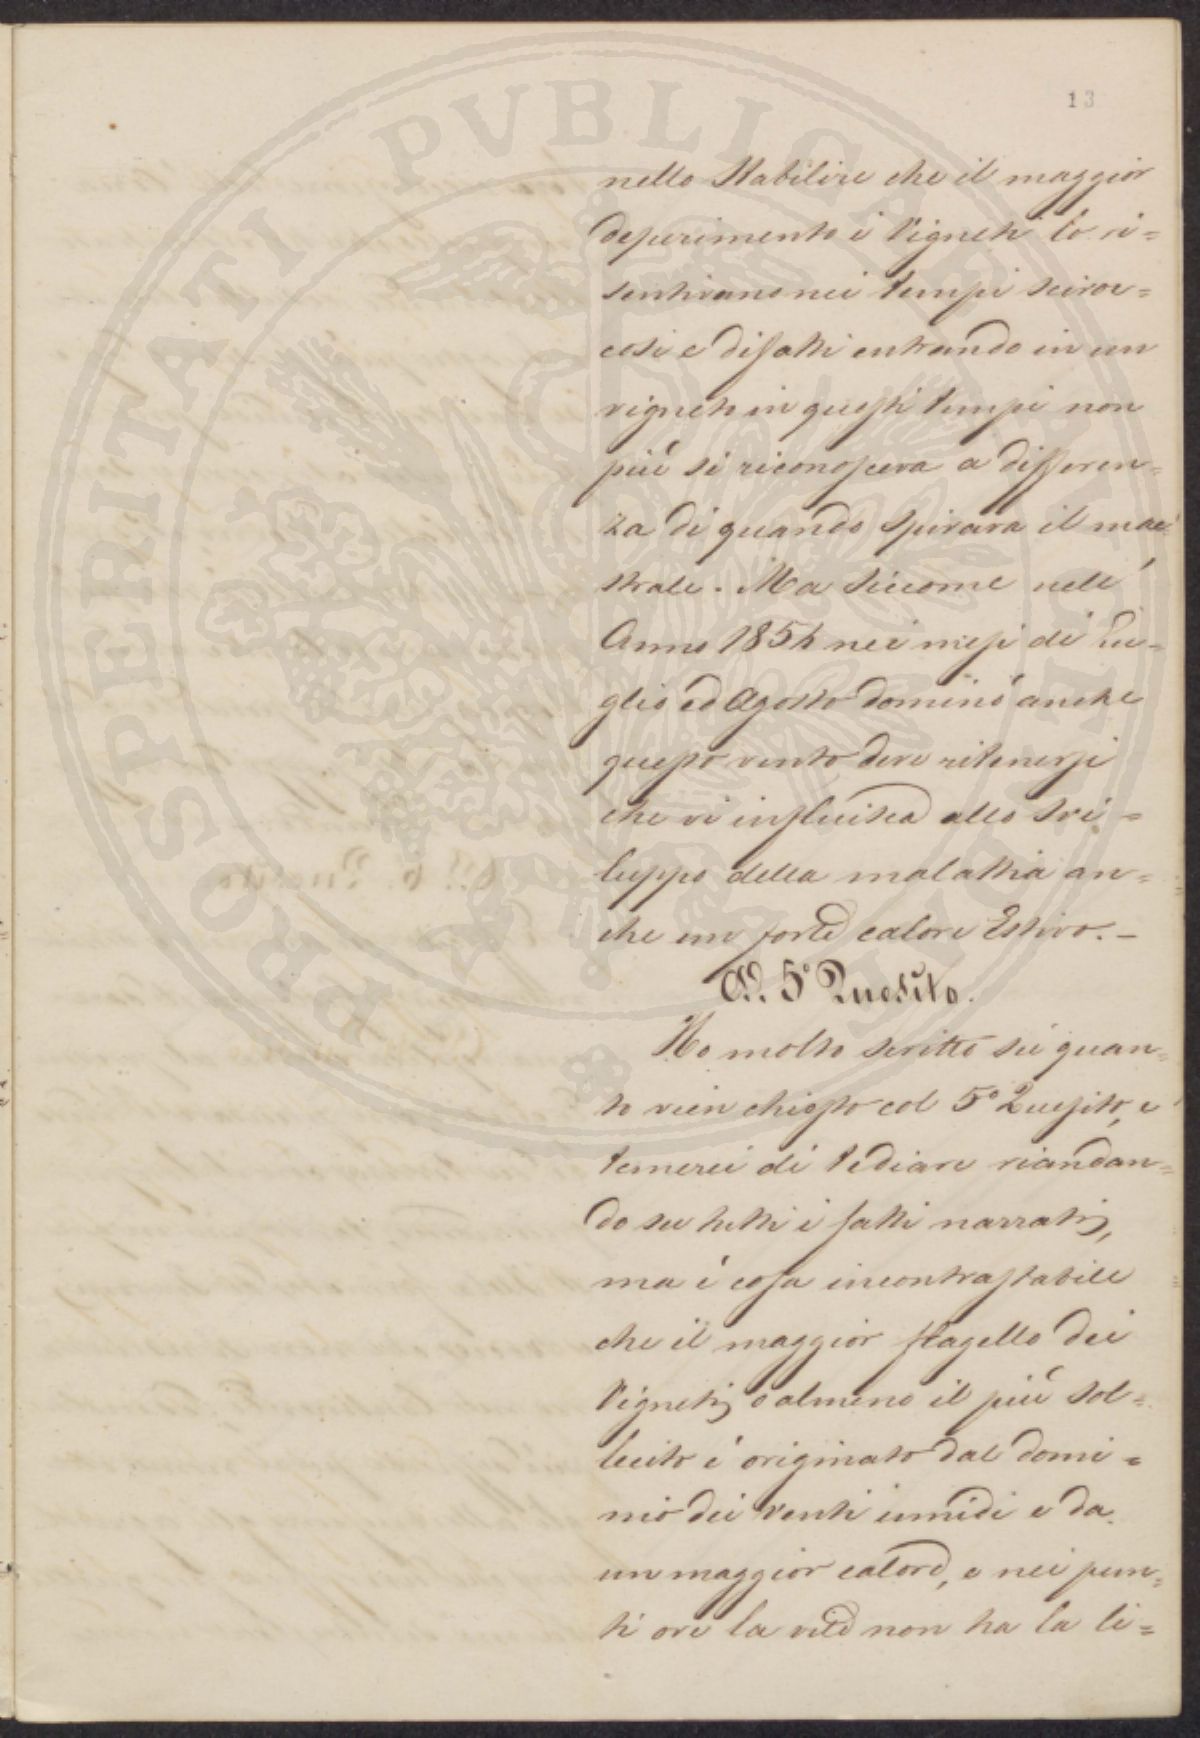 13
nello stabilire che il maggior
deperimento i Vigneti lo ri=
sentivano nei tempi sciroc=
cosi e difatti entrando in un
vigneto in questi tempi non
più si riconosceva a differen=
za di quando spirava il mae=
strale. Ma siccome nell'
Anno 1854 nei mesi di Lu=
glio ed Agosto dominò anche
questo vento deve ritenersi
che vi influisca allo svi=
luppo della malattia an=
che un forte calore Estivo. -
Al. 5° Quesito.
Ho molto scritto sù quan=
to vien chiesto col 5° Quesito, e
temerei di tediare riandan=
do su tutti i fatti narrati,
ma è cosa incontrastabile
che il maggior flagello dei
Vigneti, o almeno il più sol=
lecito è originato dal domi=
nio dei venti umidi e da
un maggior calore, e nei pun=
ti ove la vite non ha la li=
PROSPERITATI PVBLICAE